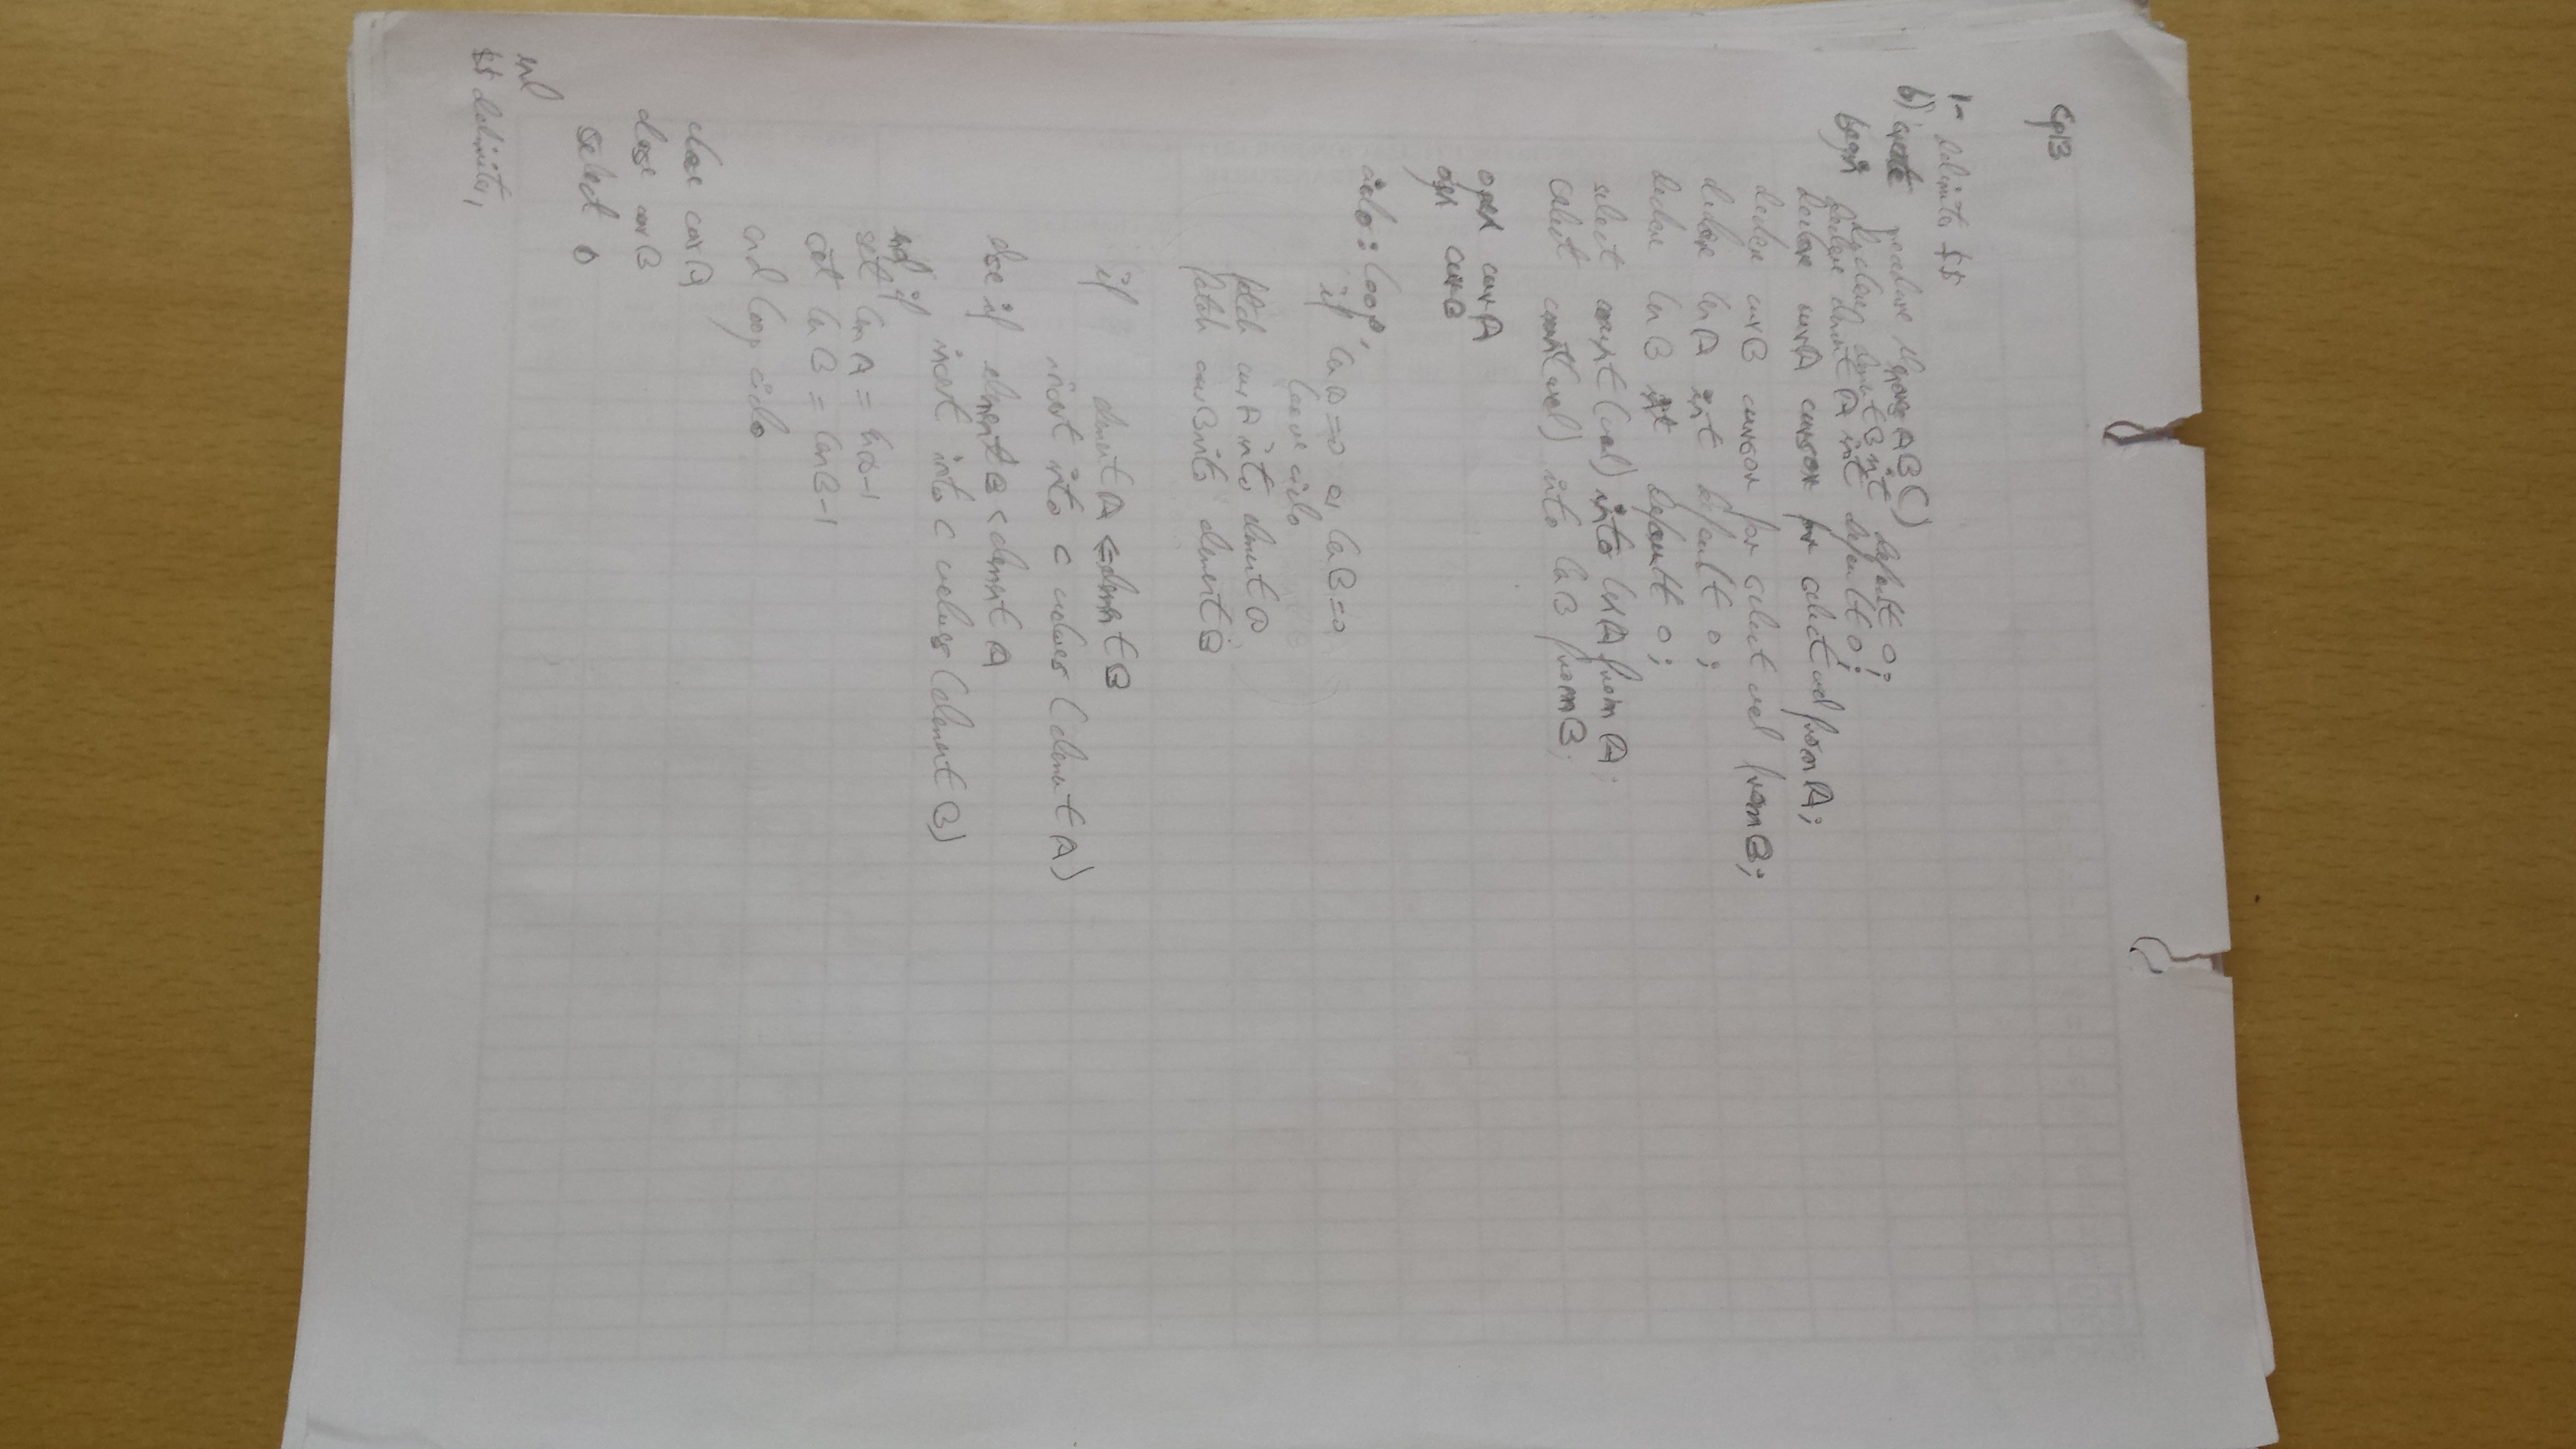 Sp13
1- delimiter $$
b) create procedure AB()
begin
declare elementB int default 0;
declare elementA int default 0;
declare curA cursor for select val from A;
declare curB cursor for select val from B;
declare lenA int default 0;
declare lenB int default 0;
select count(val) into lenA from A;
select count(val) into lenB from B;
open curA
open curB
ciclo: loop
if lenA=0 or lenB=0
leave ciclo
fetch curA into elementA
fetch curB into elementB
if elementA <= elementB
insert into C values (elementA)
else if elementB < elementA
insert into C values (elementB)
end if
set lenA = lenA-1
set lenB = lenB-1
end loop ciclo
close curA
close curB
select 0
end
$$ delimiter ;